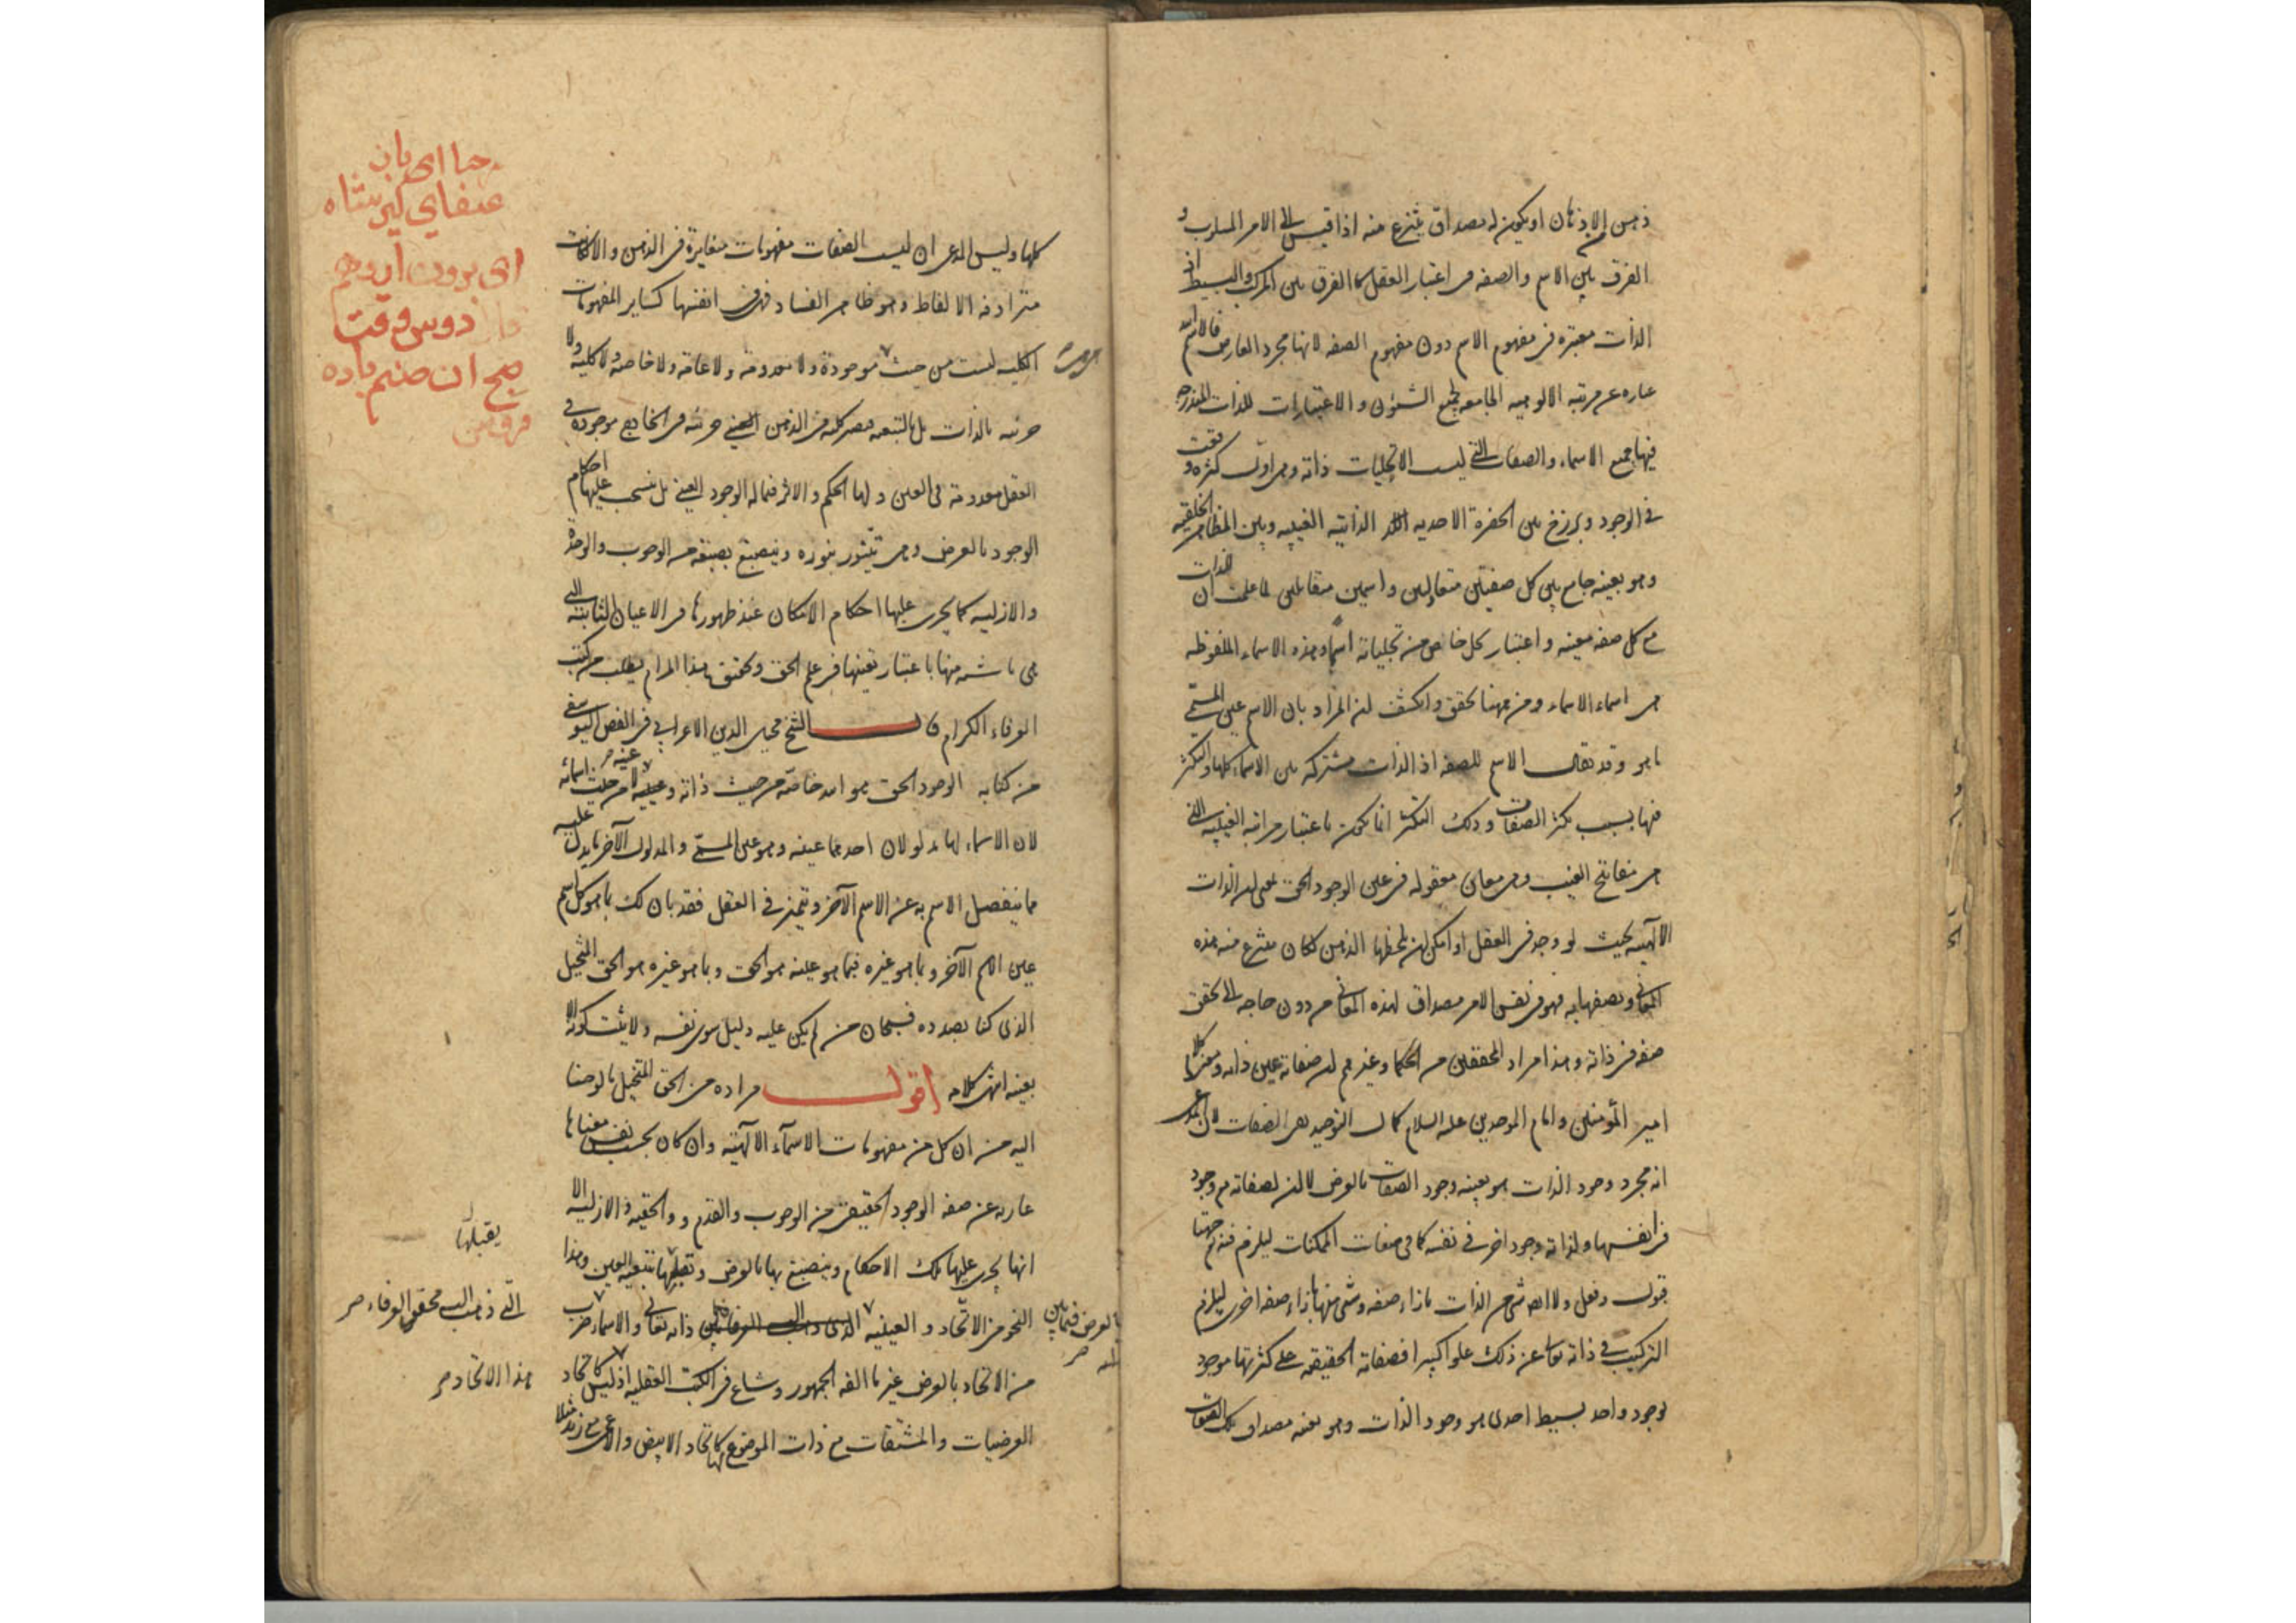 ذهن من الاذهان او يكون له مصداق ينتزع منه اذا قيس الى الامر المسلوب و
الفرق بين الاسم والصفه في اعتبار العقل كالفرق بين المركب والبسيط اذ
الذات معتبرة في مفهوم الاسم دون مفهوم الصفه لانها مجرد العارض فالاسم الله
عباره عن مرتبه الالوهيه الجامعه لجميع الشئون والاعتبارات للذات المندرجه
فيها جميع الاسماء والصفات التي ليست الا تجليات ذاته وهي اول كثرة وقعت
في الوجود وبرزخ بين الحضرة الاحديه الذاتيه الغيبيه وبين المظاهر الخلقيه
وهو بعينه جامع بين كل صفتين متقابلتين واسمين متقابلين لما علمت ان الذات
مع كل صفه معينه واعتبار تجل خاص من تجلياته اسم وهذه الاسماء الملفوظه
هي اسماء الاسماء ومن ههنا تحقق وانكشف ان المراد بان الاسم عين المسمى
ما هو وقد يقال الاسم للصفه اذ الذات مشتركه بين الاسماء كلها والتكثر
فيها بسبب تكثر الصفات وذلك التكثر انما يكون باعتبار مراتبه الغيبيه التي
هي مفاتيح الغيب وهي معان معقوله في عين الوجود الحق بمعنى ان الذات
الالهيه بحيث لو وجد في العقل او امكن ان يلحظها الذهن لكان ينتزع منه هذه
المعاني ويصفها به فهو في نفس الامر مصداق لهذه المعاني من دون حاجه الى تحقق
صفه في ذاته وهذا مراد المحققين من الحكما وغيرهم ان صفاته عين ذاته ومغزى كلام
امير المؤمنين وامام الموحدين عليه السلام كمال التوحيد نفي الصفات لان المدعى
انه مجرد وجود الذات هو بعينه وجود الصفات بالعرض لا ان لصفاته مع وجود
في انفسها ولذاته وجود اخر في نفسه كما في صفات الممكنات ليلزم فيه جهتا
قبول وفعل ولا ايضا شي من الذات بازاء صفه وشي منها بازاء صفه اخرى ليلزم
التركيب في ذاته تعالى عن ذلك علوا كبيرا فصفاته الحقيقيه على كثرتها موجود
بوجود واحد بسيط احدى هو وجود الذات وهو بعينه مصداق تلك الصفات
كلها وليس المدعى ان ليست الصفات مفهومات متغايرة في الذهن والا لكانت
مترادفه الالفاظ وهو ظاهر الفساد فهي في انفسها كساير المفهومات
الكليه ليست من حيث موجودة ولا معدومة ولا عامة ولا خاصه ولا كليه ولا
هي هي
جزئيه بالذات بل بالتبعيه فيصير كليه في الذهن جزئيه في الخارج موجودة في
العقل معدومة في العين ولها الحكم والاثر فيما له الوجود العيني بل ينسحب عليها احكام
الوجود بالعرض وهي تتنور بنوره وينصبغ بصبغه من الوجوب والوحدة
والازليه كما يجرى عليها احكام الامكان عند ظهورها في الاعيان الثابته التي
هي ناشئه منها باعتبار تعينها في علم الحق وتحقيق هذا المرام يطلب من كتب
العرفاء الكرام قال الشيخ محيى الدين الاعرابي في الفص اليوسفي
من كتابه الوجود الحق هو الله خاصة من حيث ذاته وعينه لا من حيث اسمائه
لان الاسماء لها مدلولان احدهما عينه وهو عين المسمى والمدلول الآخر ما يدل عليه
مما ينفصل الاسم به عن الاسم الآخر ويتميز في العقل فقد بان لك بما هو كل اسم
عين الاسم الآخر وبما هو غيره فبما هو عينه هو الحق وبما هو غيره هو الحق المتخيل
الذى كنا بصدده فسبحان من لم يكن عليه دليل سوى نفسه ولا يثبت كونه الا
بعينه انتهى كلامه اقول مراده من الحق المتخيل ما لوحنا
اليه من ان كل من مفهومات الاسمآء الالهية وان كان بحسب نفس معناها
عاريه عن صفه الوجود الحقيقي من الوجوب والقدم والحقيه والازليه الا
انها يجرى عليها تلك الاحكام وينصبغ بها بالعرض بتبعيه العين وهذا
يقبلها
النحو من الاتحاد والعينيه بين ذاته تعالى والاسماء ضرب
التي ذهب اليه محققو العرفاء صح
بالعرض فيما بين
من الاتحاد بالعرض غير ما الفه الجمهور وشاع في الكتب العقليه اذ ليس كاتحاد
هذا الاتحاد صح
العرضيات والمشتقات مع ذات الموضوع كاتحاد الابيض والاعمى مع زيد مثلا
عنقاى
اى برون از وهم
دوس وقت
صبح ان صنم باده
فروش